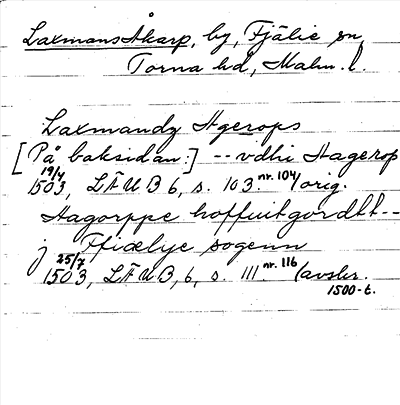 Laxmans Åkarp, by, Fjälie sn,
Torna hd, Malm. l.
Laxmandz Hgerops
[På baksidan:] -- vdhi Hagerop
19/4 1503, LÄUB 6, s. 103. nr. 104/orig.
Hagorppe hoffuitgordtt--
j Ffiælye sogenn
25/7 1503, LÄUB, 6, s. 111. nr. 116 /avskr.
1500-t.